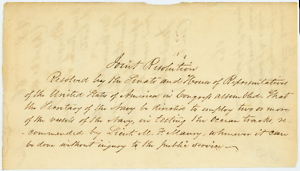 Joint Resolution
Resolved by the Senate and House of Representatives
of the United States of America in Congress assembled. That
the Secretary of the Navy be directed to employ two or more
of the vessels of the Navy, in testing the ocean tracks, re-
commended by Lieut. M. F. Maury, whenever it can
be done without injury to the public service—